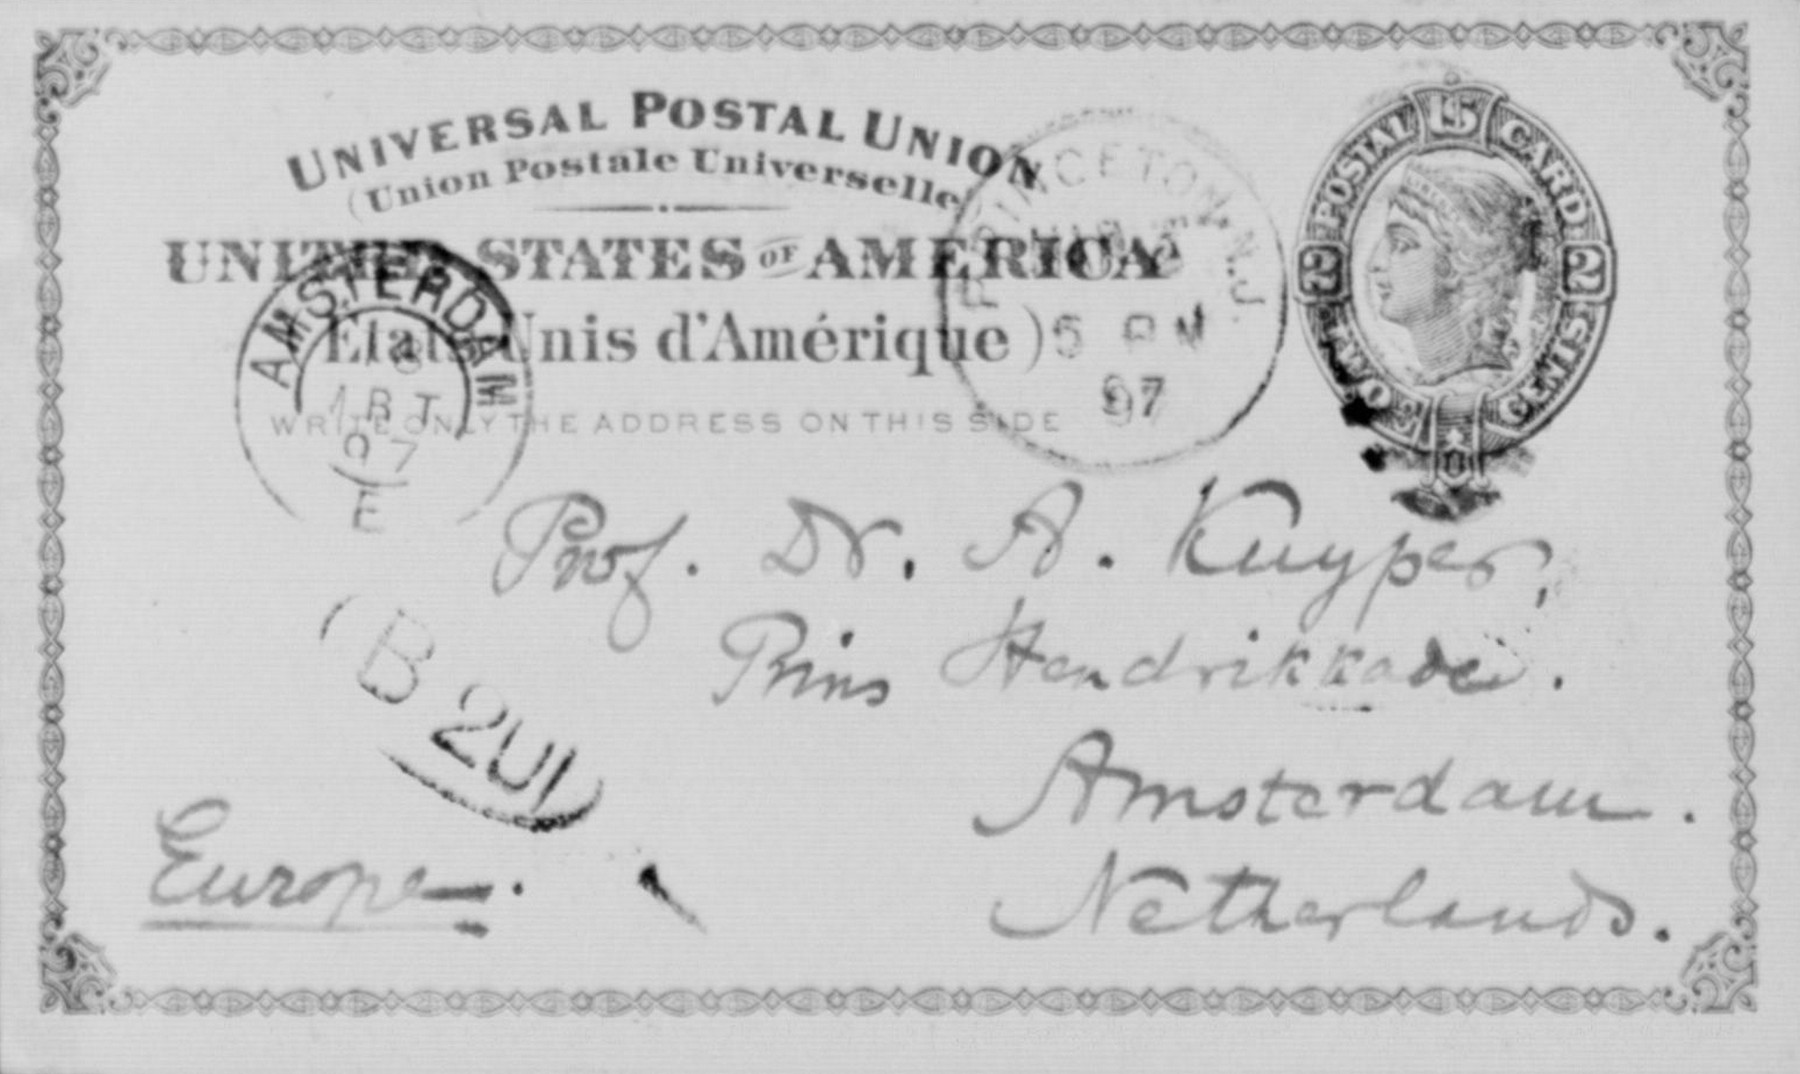 UNIVERSAL POSTAL UNION
(Union Postale Universelle)
UNITED STATES OF AMERICA
Etats Unis d'Amérique)
WRITE ONLY THE ADDRESS ON THIS SIDE
PRINCETON N.J.
5 PM
97
POSTAL CARD
US
2 2
TWO CENTS
AMSTERDAM
97
E
Prof. Dr. A. Kuyper,
Prins Hendrikkade.
Amsterdam.
Netherlands.
Europe.
B